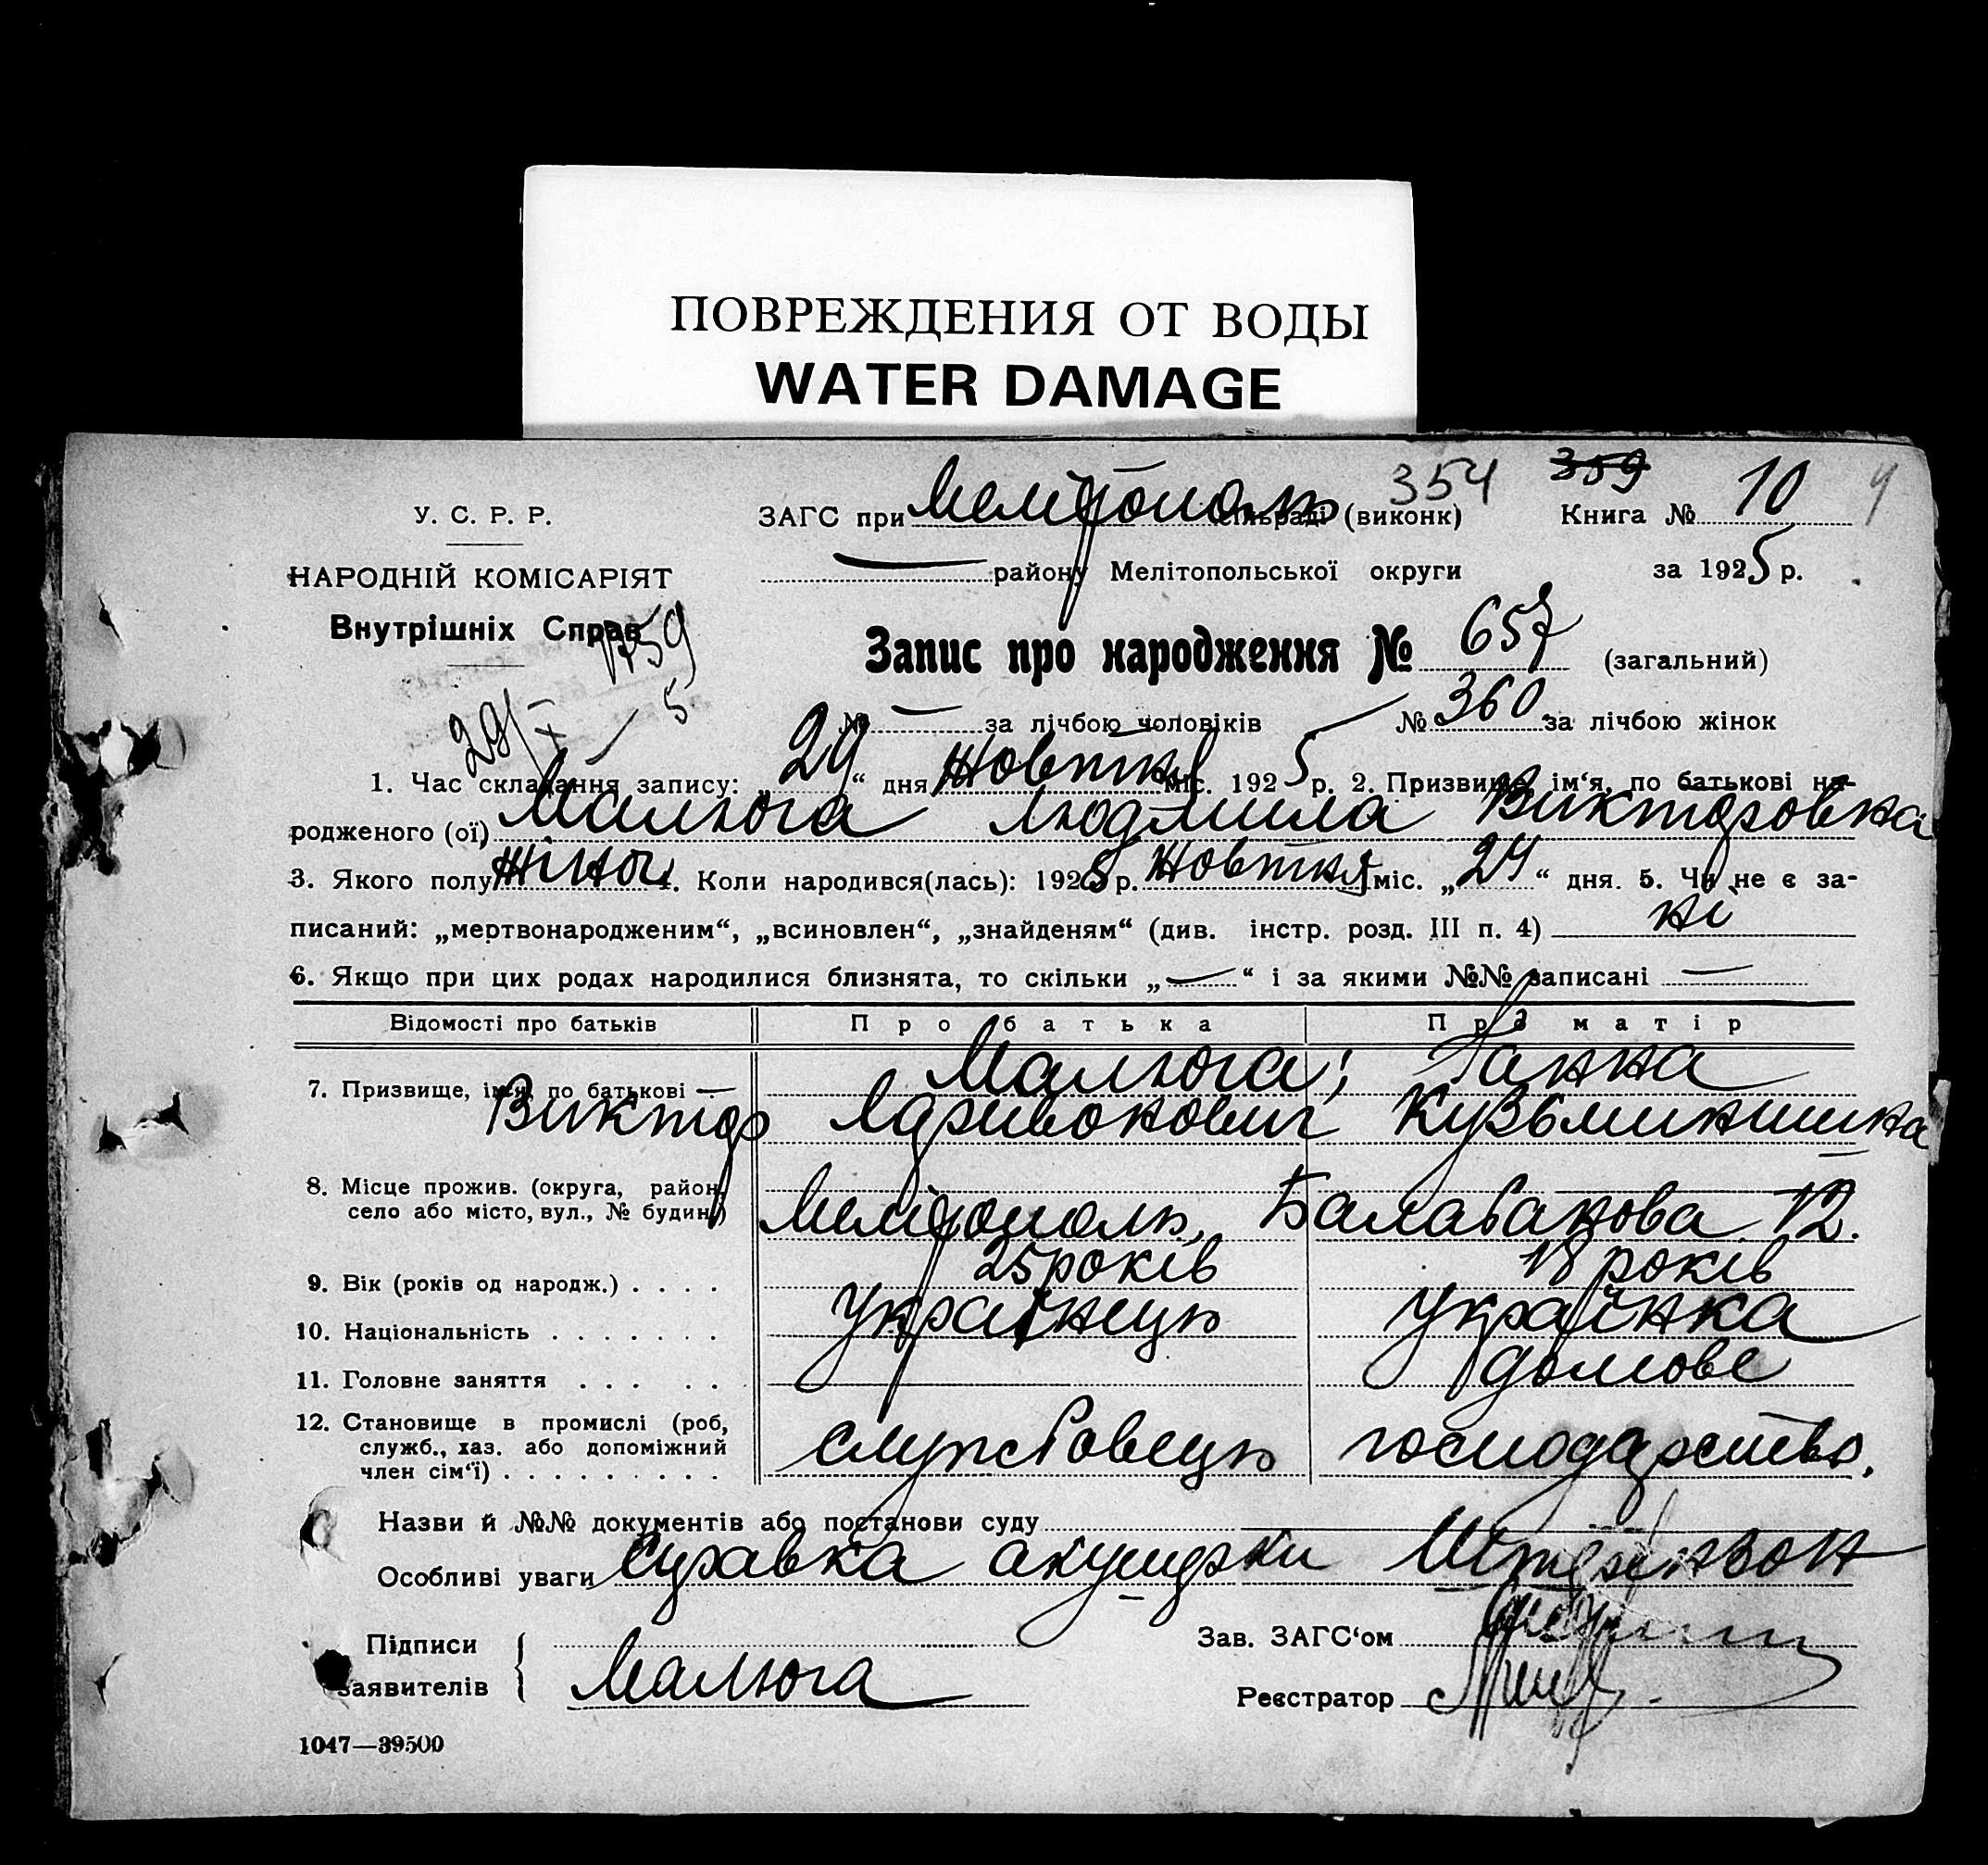 ПОВРЕЖДЕНИЯ ОТ ВОДЫ
WATER DAMAGE
354 359
У. С. Р. Р. ЗАГС при Мелітополь сільраді (виконк) Книга № 10
НАРОДНІЙ КОМІСАРІЯТ — району Мелітопольської округи за 1925 р.
Внутрішніх Справ
Запис про народження № 657 (загальний)
№ — за лічбою чоловіків № 360 за лічбою жінок
29/X — 5
1. Час складання запису: „29“ дня Жовтня міс. 1925 р. 2. Призвище, ім‘я, по батькові на-
родженого (ої) Малюга Людмила Викторовна
3. Якого полу жіноч. 4. Коли народився(лась): 1925 р. Жовтня міс. „24“ дня. 5. Чи не є за-
писаний: „мертвонародженим“, „всиновлен“, „знайденям“ (див. інстр. розд. III п. 4) ні
6. Якщо при цих родах народилися близнята, то скільки „—“ і за якими №№ записані —
Відомості про батьків Про батька Про матір
7. Призвище, ім‘я, по батькові — Малюга; Ганна
Виктор Кузьминишна
8. Місце прожив. (округа, район,
село або місто, вул., № будин.) Мелітополь, Балабанова 12.
9. Вік (років од народж.) . . . . 25 років 18 років
10. Національність . . . . . . . Українець Українка
11. Головне заняття . . . . . домове
12. Становище в промислі (роб,
служб., хаз. або допоміжний
член сім‘ї) . . . . . . . . . службовець господарство.
Назви й №№ документів або постанови суду
Особливі уваги Справка акушерки
Підписи Зав. ЗАГС‘ом
заявителів Малюга Реєстратор
1047—39500